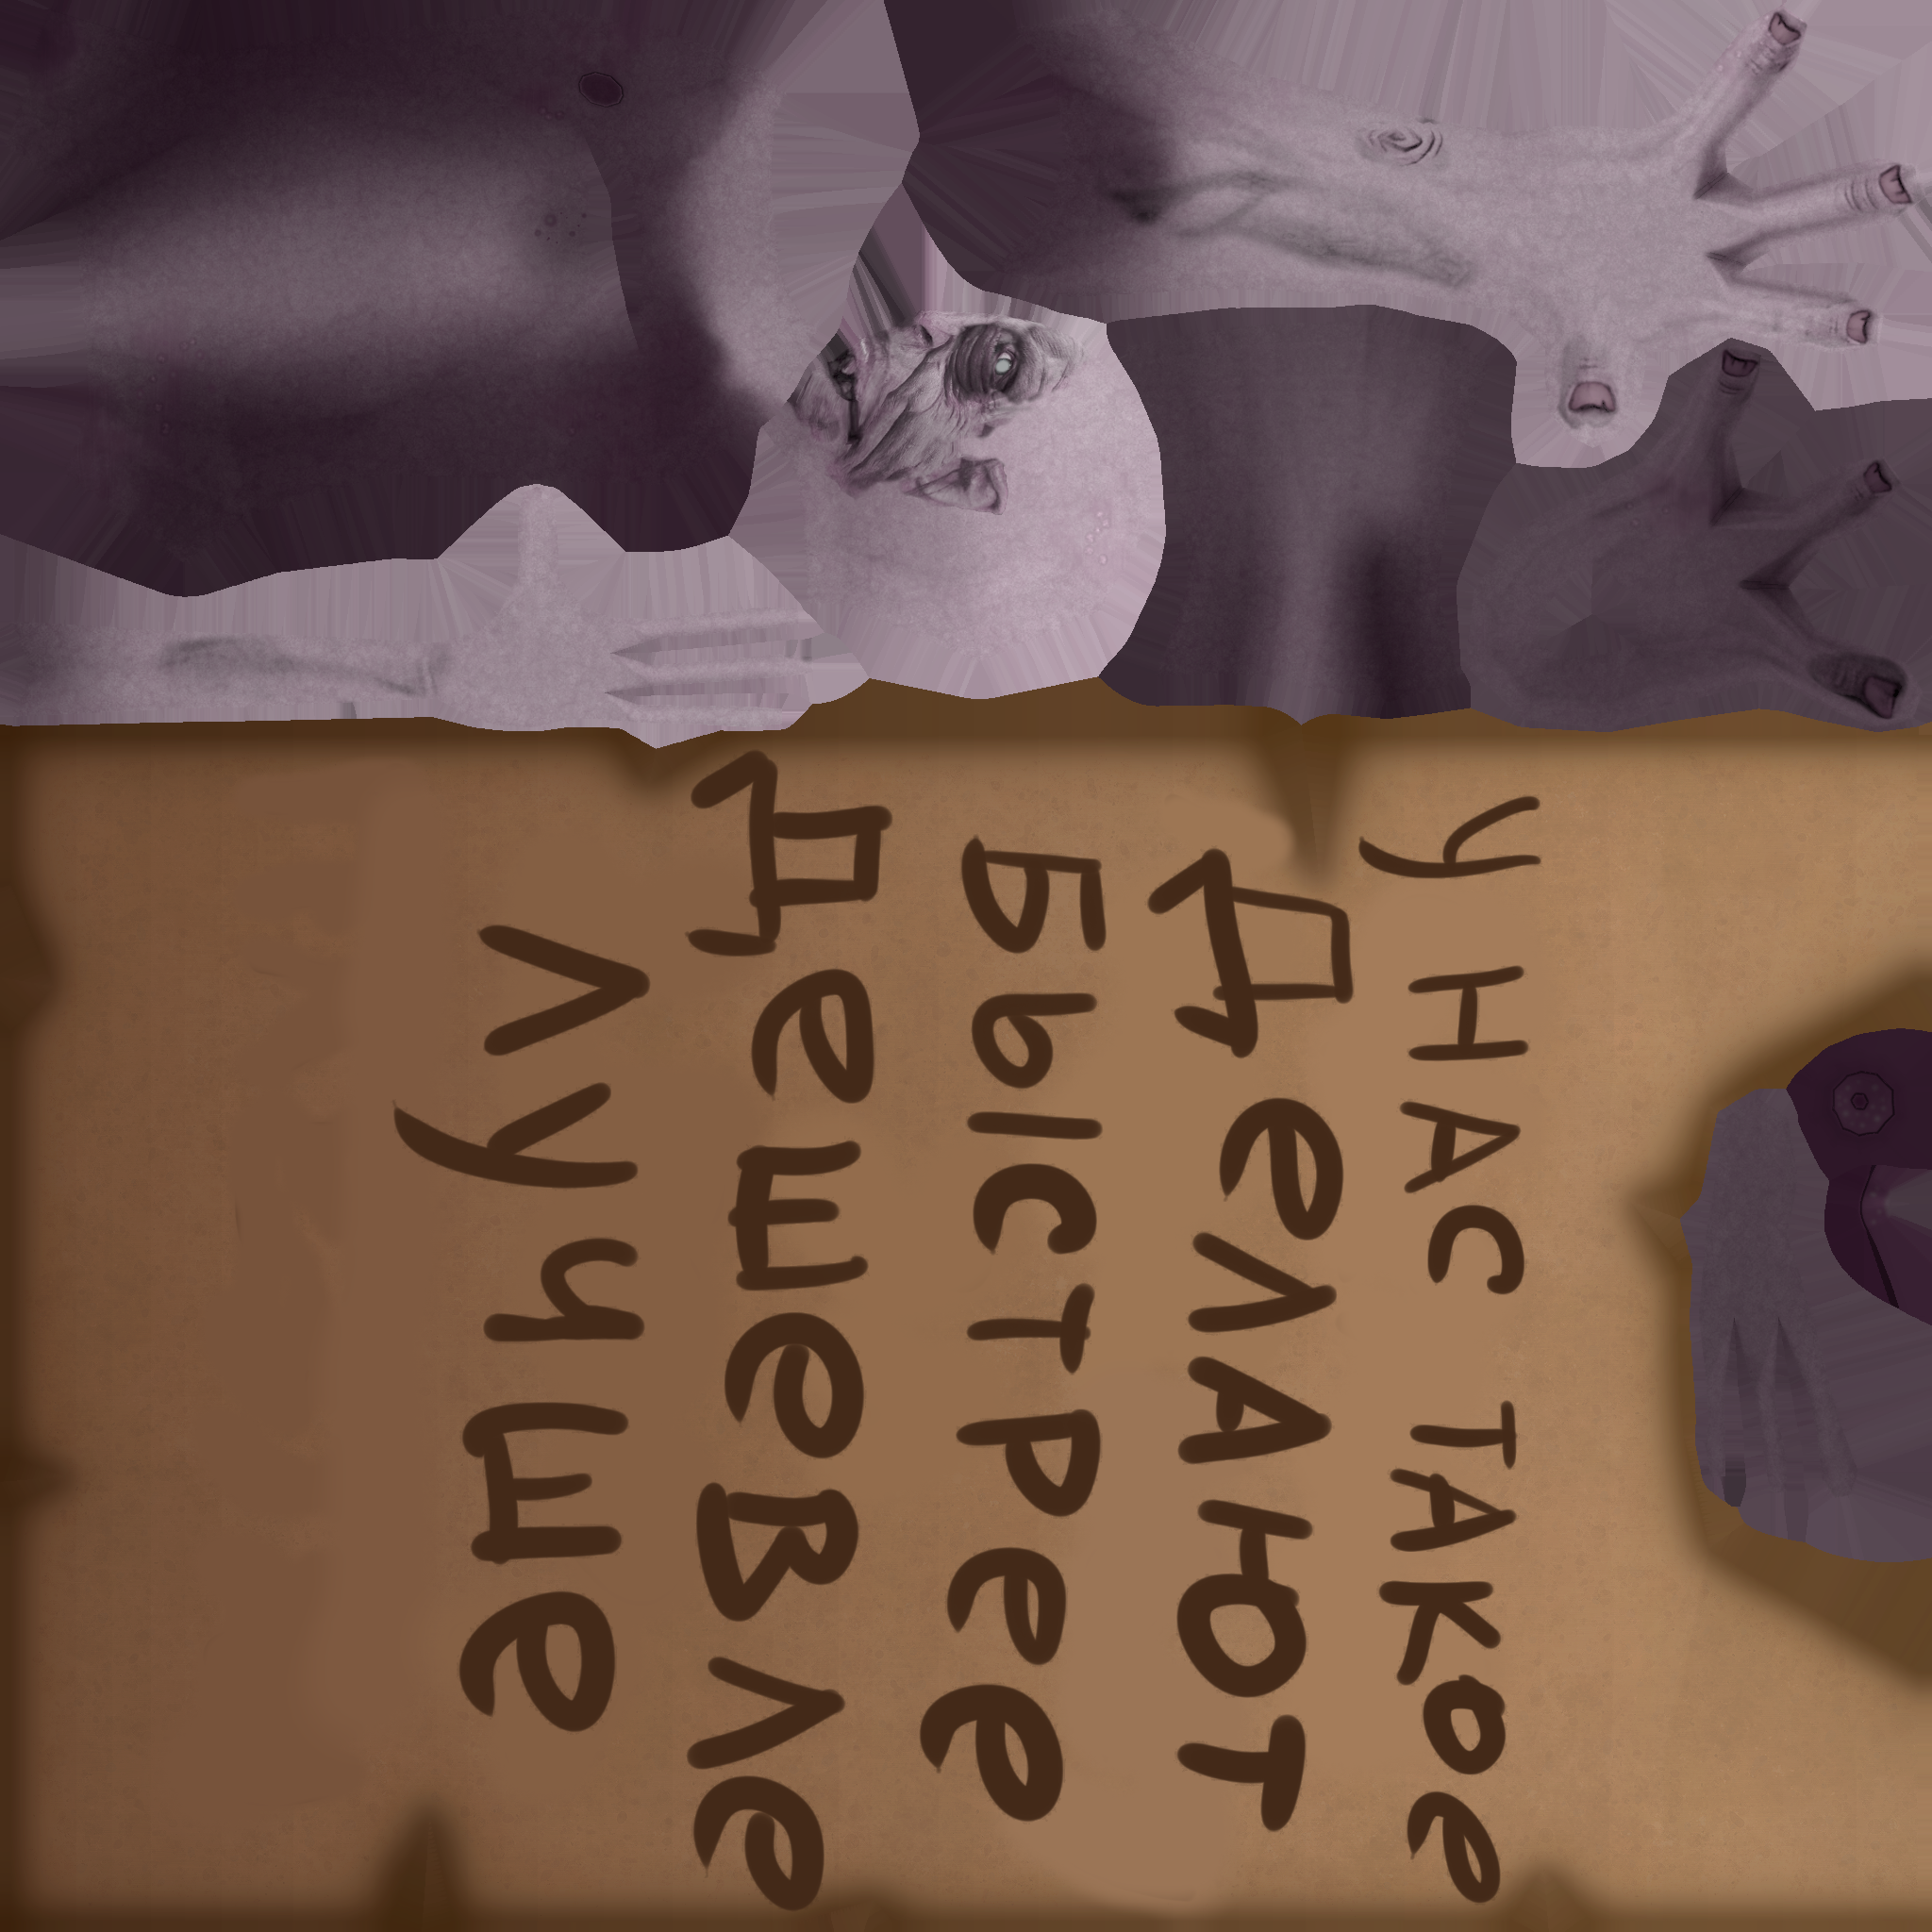 У НАС ТАКОе
ДеЛАЮТ
БЫСТРее
ДеШеВЛе
ЛУЧШе